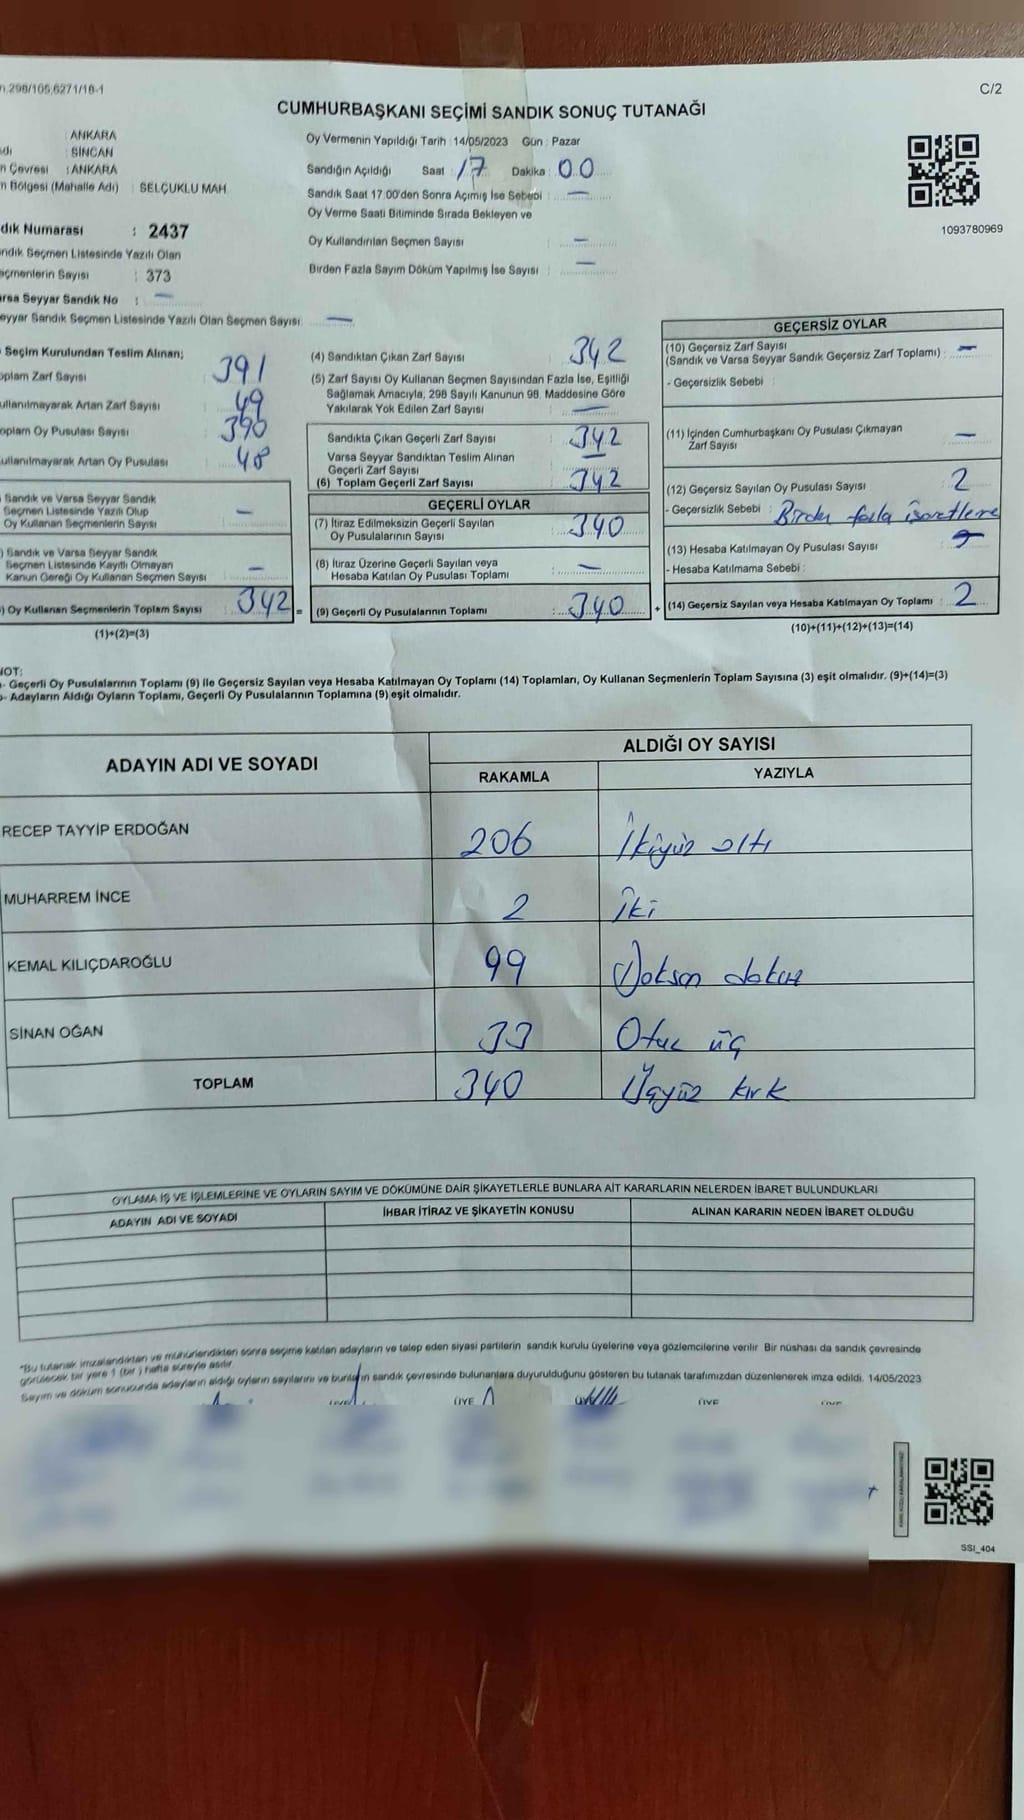 298/105,6271/18-1
C/2
CUMHURBAŞKANI SEÇİMİ SANDIK SONUÇ TUTANAĞI
: ANKARA
: SİNCAN
Çevresi : ANKARA
Bölgesi (Mahalle Adı) : SELÇUKLU MAH.
dık Numarası : 2437
ndık Seçmen Listesinde Yazılı Olan
eçmenlerin Sayısı : 373
arsa Seyyar Sandık No : —
eyyar Sandık Seçmen Listesinde Yazılı Olan Seçmen Sayısı: —
Oy Vermenin Yapıldığı Tarih : 14/05/2023 Gün : Pazar
Sandığın Açıldığı Saat : 17 Dakika : 00
Sandık Saat 17.00'den Sonra Açımış İse Sebebi : —
Oy Verme Saati Bitiminde Sırada Bekleyen ve
Oy Kullandırılan Seçmen Sayısı : —
Birden Fazla Sayım Döküm Yapılmış İse Sayısı : —
1093780969
Seçim Kurulundan Teslim Alınan;
oplam Zarf Sayısı : 391
ullanılmayarak Artan Zarf Sayısı : 49
oplam Oy Pusulası Sayısı : 390
ullanılmayarak Artan Oy Pusulası : 48
Sandık ve Varsa Seyyar Sandık
Seçmen Listesinde Yazılı Olup
Oy Kullanan Seçmenlerin Sayısı : —
) Sandık ve Varsa Seyyar Sandık
Seçmen Listesinde Kayıtlı Olmayan
Kanun Gereği Oy Kullanan Seçmen Sayısı : —
) Oy Kullanan Seçmenlerin Toplam Sayısı : 342 =
(1)+(2)=(3)
(4) Sandıktan Çıkan Zarf Sayısı : 342
(5) Zarf Sayısı Oy Kullanan Seçmen Sayısından Fazla İse, Eşitliği
Sağlamak Amacıyla, 298 Sayılı Kanunun 98. Maddesine Göre
Yakılarak Yok Edilen Zarf Sayısı : —
Sandıkta Çıkan Geçerli Zarf Sayısı : 342
Varsa Seyyar Sandıktan Teslim Alınan
Geçerli Zarf Sayısı : —
(6) Toplam Geçerli Zarf Sayısı : 342
GEÇERLİ OYLAR
(7) İtiraz Edilmeksizin Geçerli Sayılan
Oy Pusulalarının Sayısı : 340
(8) İtiraz Üzerine Geçerli Sayılan veya
Hesaba Katılan Oy Pusulası Toplamı : —
(9) Geçerli Oy Pusulalarının Toplamı : 340 +
GEÇERSİZ OYLAR
(10) Geçersiz Zarf Sayısı
(Sandık ve Varsa Seyyar Sandık Geçersiz Zarf Toplamı) : —
- Geçersizlik Sebebi :
(11) İçinden Cumhurbaşkanı Oy Pusulası Çıkmayan
Zarf Sayısı : —
(12) Geçersiz Sayılan Oy Pusulası Sayısı : 2
- Geçersizlik Sebebi : Birden fazla işaretleme
(13) Hesaba Katılmayan Oy Pusulası Sayısı :
- Hesaba Katılmama Sebebi :
(14) Geçersiz Sayılan veya Hesaba Katılmayan Oy Toplamı : 2
(10)+(11)+(12)+(13)=(14)
NOT:
- Geçerli Oy Pusulalarının Toplamı (9) ile Geçersiz Sayılan veya Hesaba Katılmayan Oy Toplamı (14) Toplamları, Oy Kullanan Seçmenlerin Toplam Sayısına (3) eşit olmalıdır. (9)+(14)=(3)
- Adayların Aldığı Oyların Toplamı, Geçerli Oy Pusulalarının Toplamına (9) eşit olmalıdır.
ADAYIN ADI VE SOYADI
ALDIĞI OY SAYISI
RAKAMLA YAZIYLA
RECEP TAYYİP ERDOĞAN 206 İkiyüz altı
MUHARREM İNCE 2 İki
KEMAL KILIÇDAROĞLU 99 Doksan dokuz
SİNAN OĞAN 33 Otuz üç
TOPLAM 340 Üçyüz kırk
OYLAMA İŞ VE İŞLEMLERİNE VE OYLARIN SAYIM VE DÖKÜMÜNE DAİR ŞİKAYETLERLE BUNLARA AİT KARARLARIN NELERDEN İBARET BULUNDUKLARI
ADAYIN ADI VE SOYADI İHBAR İTİRAZ VE ŞİKAYETİN KONUSU ALINAN KARARIN NEDEN İBARET OLDUĞU
*Bu tutanak imzalandıktan ve mühürlendikten sonra seçime katılan adayların ve talep eden siyasi partilerin sandık kurulu üyelerine veya gözlemcilerine verilir. Bir nüshası da sandık çevresinde
görülecek bir yere 1 (bir) hafta süreyle asılır.
Sayım ve döküm sonucunda adayların aldığı oyların sayılarını ve bunların sandık çevresinde bulunanlara duyurulduğunu gösteren bu tutanak tarafımızdan düzenlenerek imza edildi. 14/05/2023
ÜYE ÜYE ÜYE ÜYE ÜYE
SSI_404